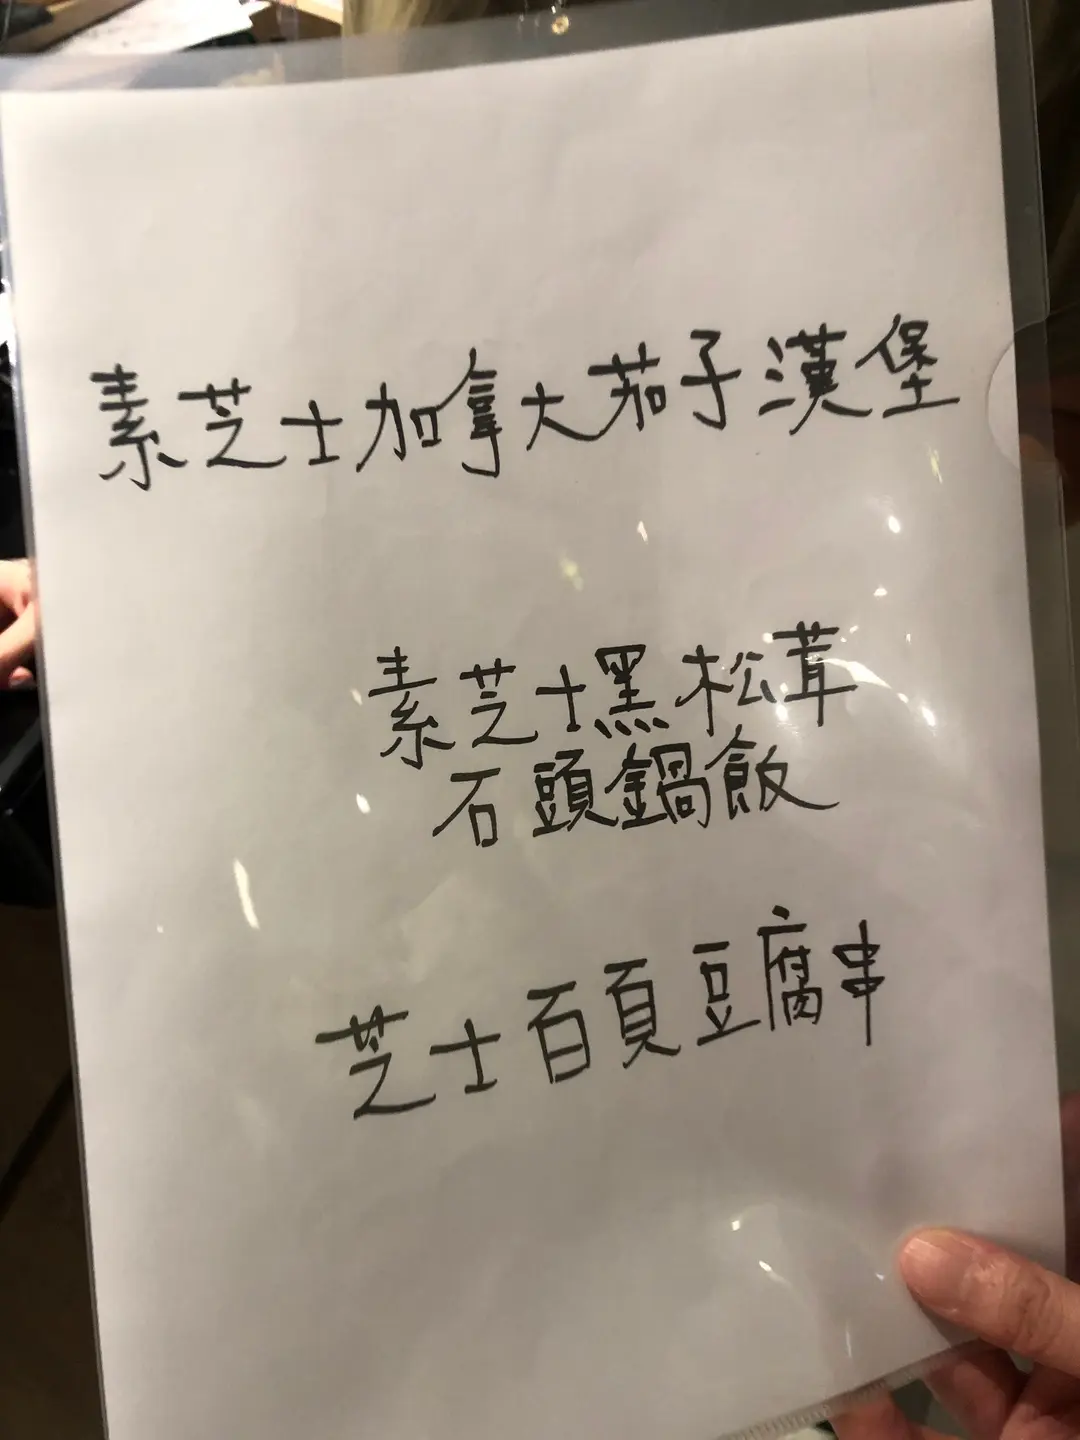 素芝士加拿大茄子漢堡
素芝士黑松茸
石頭鍋飯
芝士百頁豆腐串